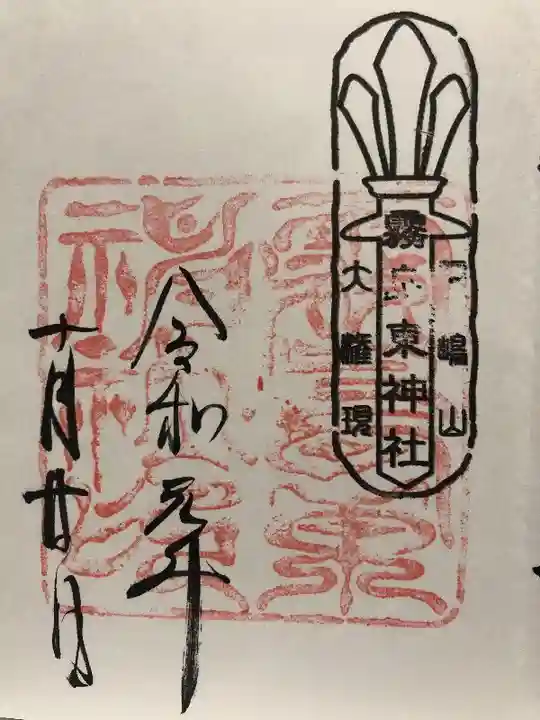 嶋山
霧島東神社
大権現
令和元年
十月廿日